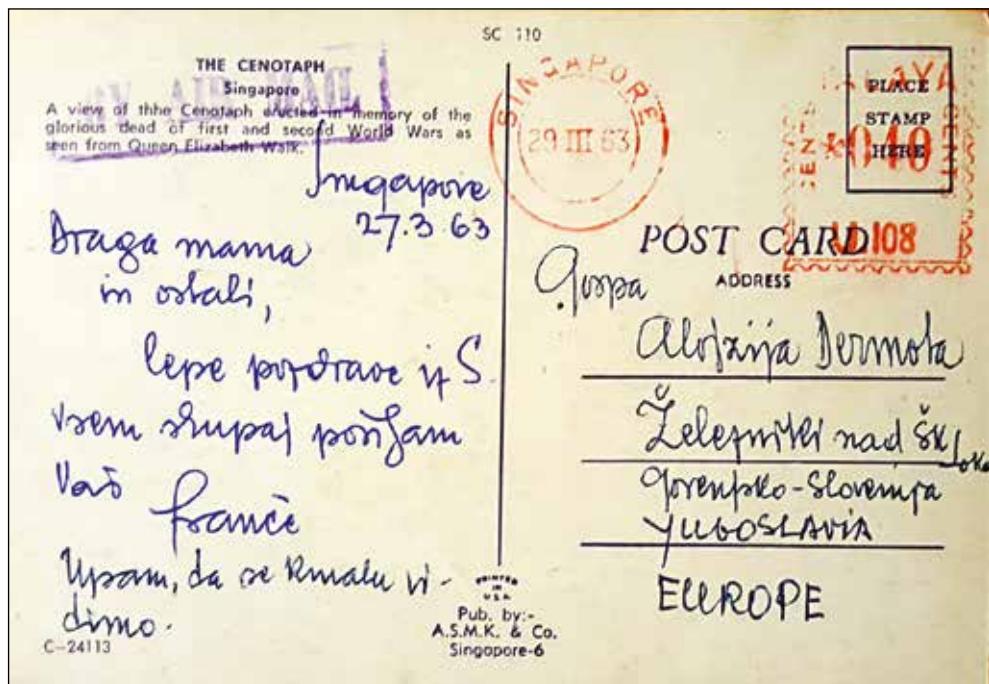 SC 110
THE CENOTAPH
Singapore
A view of thhe Cenotaph erected in memory of the
glorious dead of first and second World Wars as
seen from Queen Elizabeth Walk.
BY AIR MAIL
Singapore
27.3.63
Draga mama
in ostali,
lepe pozdrave iz S.
vsem skupaj pošiljam
Vaš
France
Upam, da se kmalu vi-
dimo.
C-24113
PRINTED
IN
U.S.A.
Pub. by:-
A.S.M.K. & Co.
Singopore-6
SINGAPORE
29 III 63
MALAYA
CENTS
CENTS
040
108
PLACE
STAMP
HERE
POST CARD
ADDRESS
Gospa
Alojzija Dermota
Železniki nad Šk Loko
Gorenjsko-Slovenija
YUGOSLAVIA
EUROPE